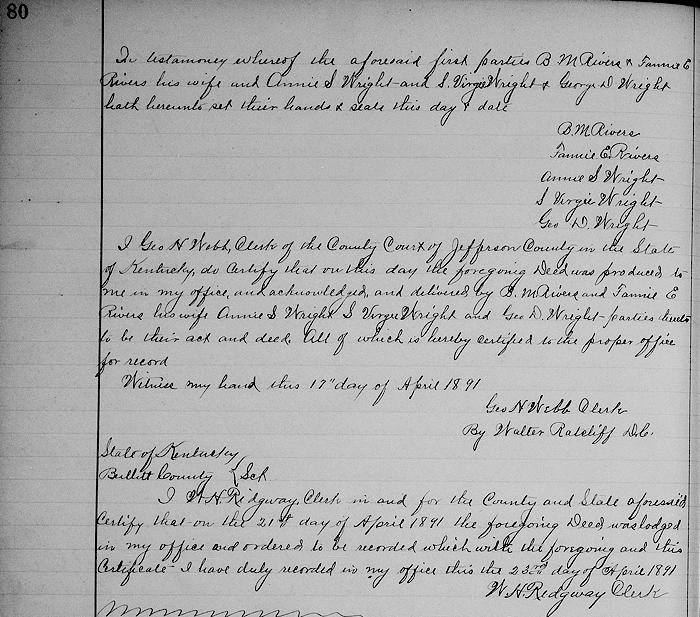 80
In testamoney whereof the aforesaid first parties B M Rivers & Fannie E
Rivers his wife and Annie S Wright and S. Virgie Wright & George D Wright
hath hereunto set their hands & seals this day & date
B. M Rivers
Fannie E. Rivers
Annie S Wright
S Virgie Wright
Geo D. Wright
I Geo N Webb, Clerk of the County Court of Jefferson County in the State
of Kentucky, do Certify that on this day the foregoing Deed was produced to
me in my office, and acknowledged, and delivered by B. M Rivers and Fannie E
Rivers his wife Annie S Wright S Virgie Wright and Geo D. Wright parties hereto
to be their act and deed. All of which is hereby certified to the proper office
for record
Witness my hand this 17" day of April 1891
Geo N Webb Clerk
By Walter Ratcliff D.C.
State of Kentucky
Bullitt County { Sct
I W. H. Ridgway, Clerk in and for the County and State aforesaid
Certify that on the 21st day of April 1891 the foregoing Deed was lodged
in my office and ordered to be recorded which with the foregoing and this
Certificate I have duly recorded in my office this the 23rd day of April 1891
W. H. Ridgway Clerk